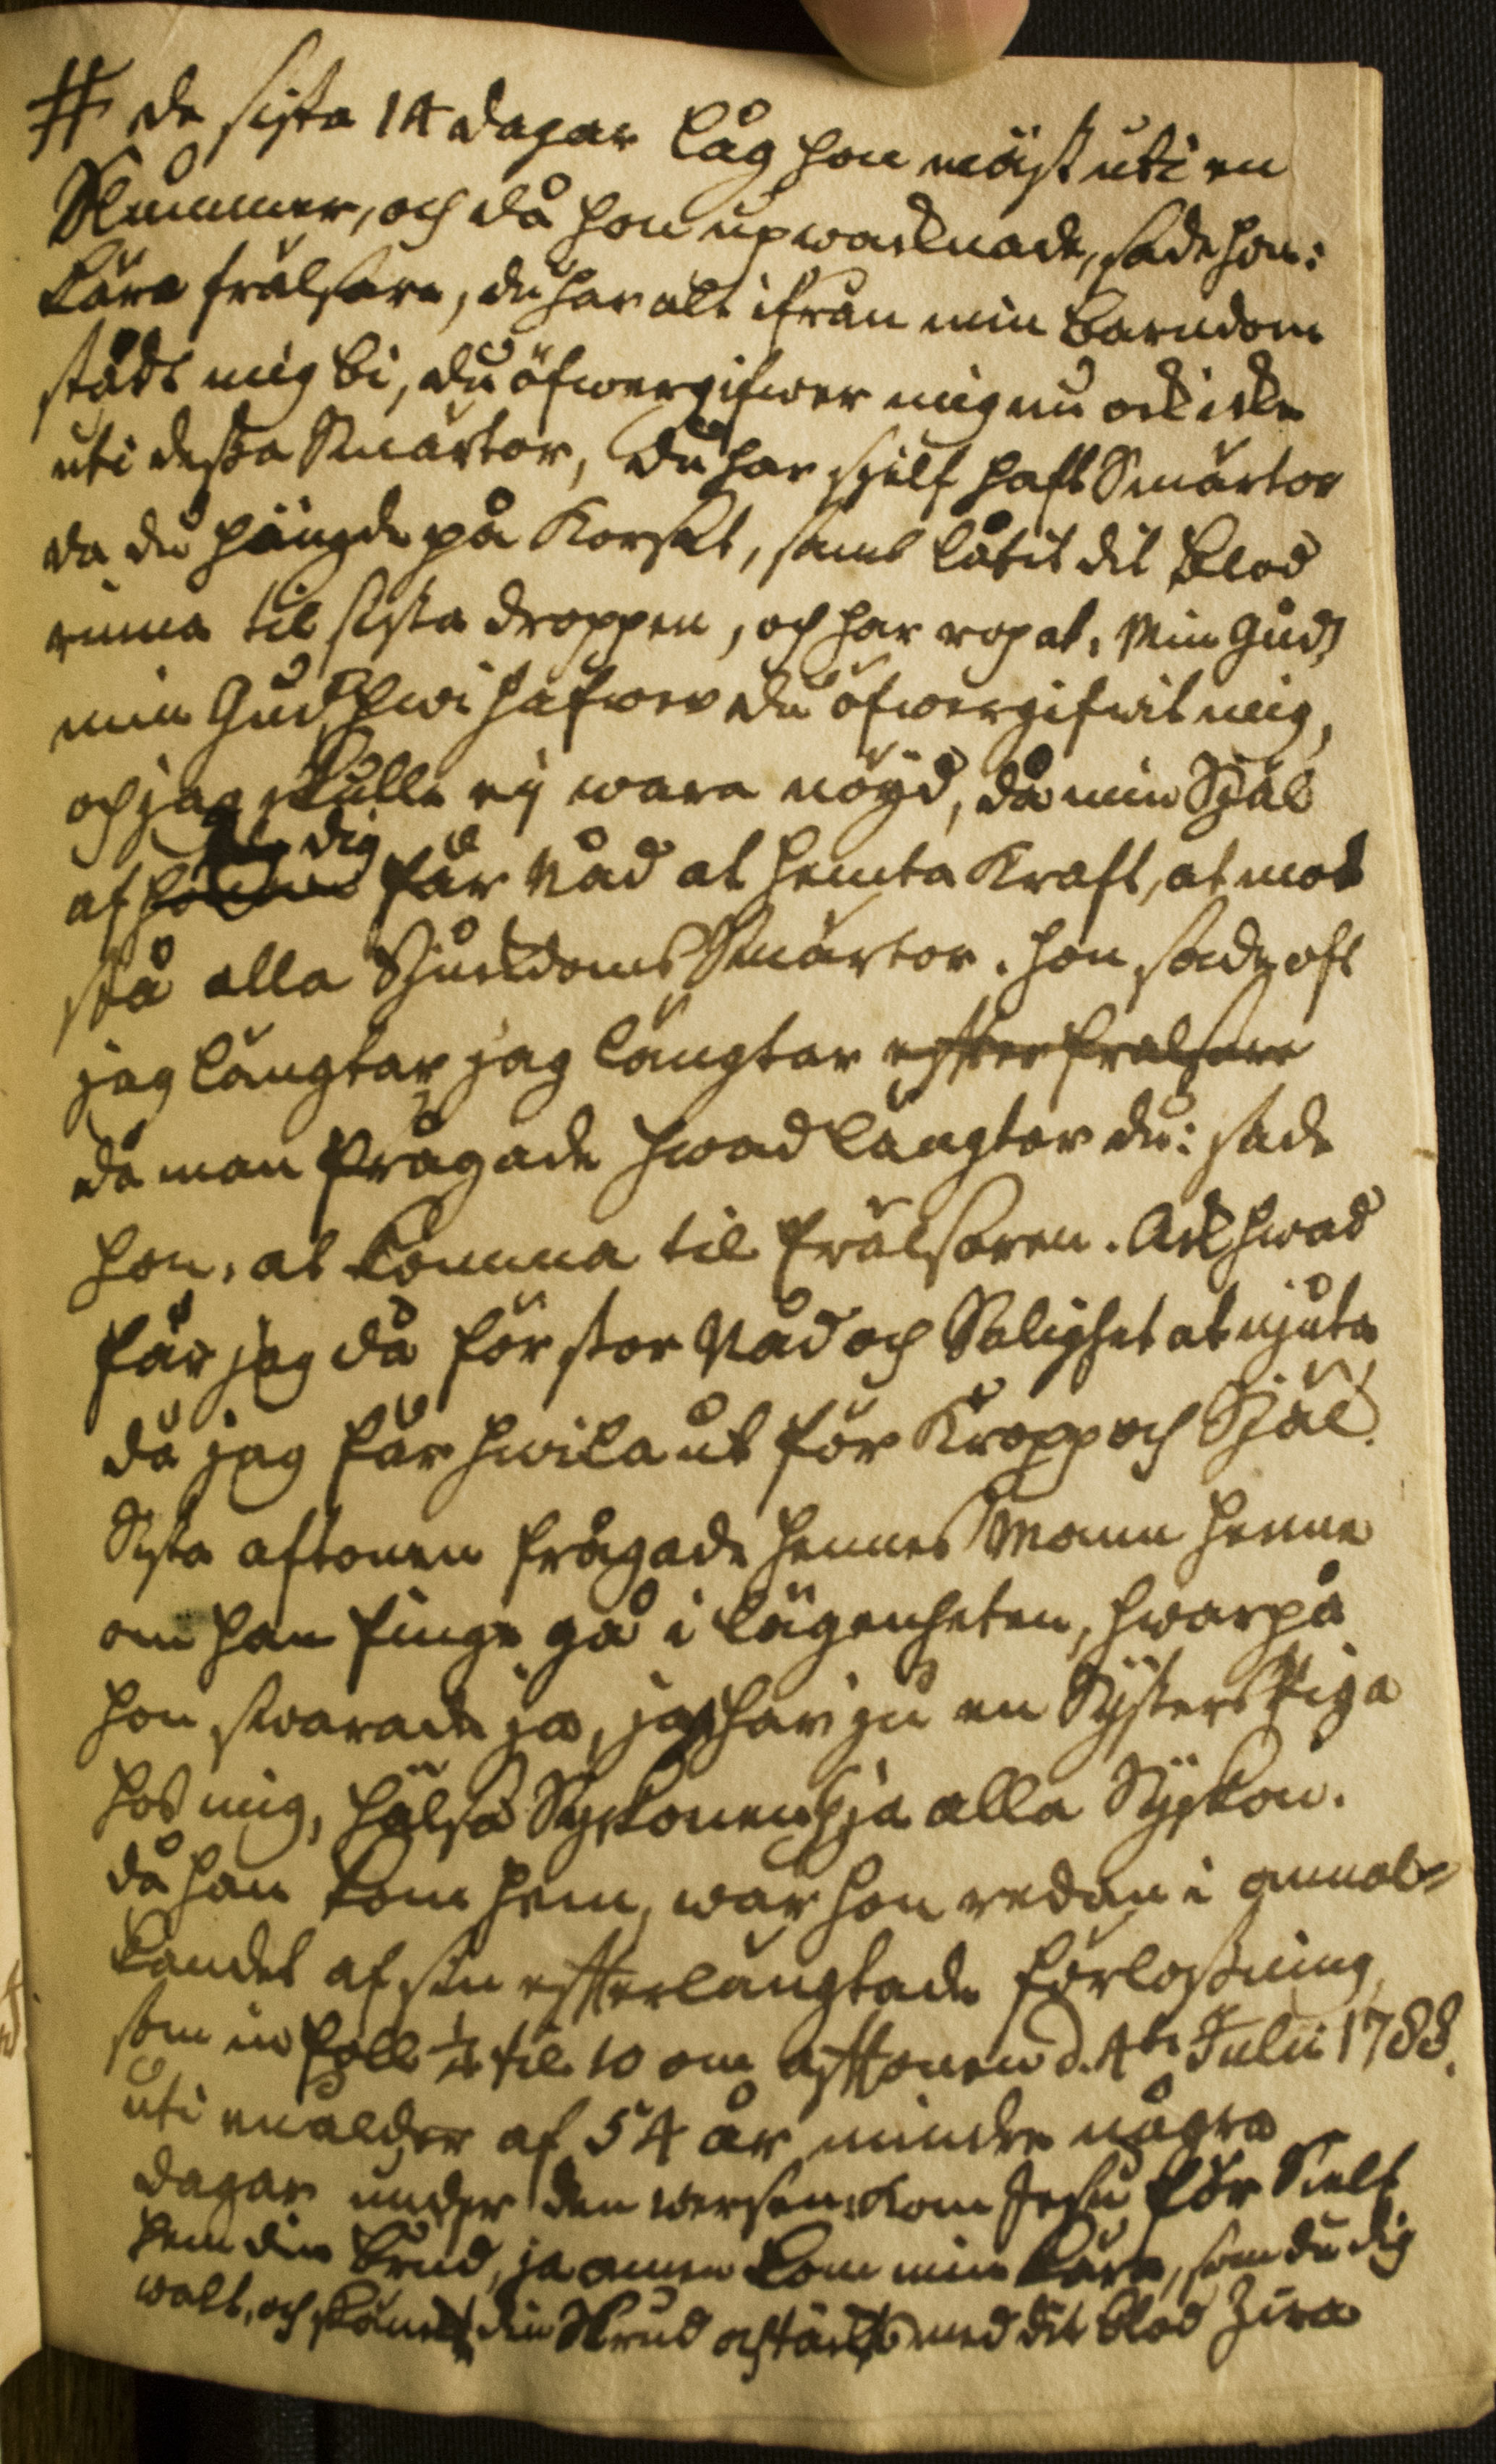 # de sista 14 dagar låg hon mäst uti en
Slummer, och då hon upwacknade, sade hon:
käre frälsare, du har alt ifrån min barndom
städt mig bi, du öfwergifwer mig nu ock icke
uti dessa Smärtor, du har sjelf haft Smärtor
da du hängde på Korset, samt låtit dit Blod
rinna til sista droppen, och har ropat, Min Gud,
min Gud, hwi hafwer du öfwergifwit mig,
och jag skulle ej wara nögd, då min Själ
af dig får Nåd at hemta Kraft, at mot
stå alla SjukdomsSmärtor. hon sade oft
jag längtar jag längtar efter frälsare
då man frågade hwad längtar du: sade
hon, at komma til frälsaren. Ack hwad
får jag då för stor Nåd och Salighet at njuta
då jag får hwila ut för Kropp och Själ.
Sista aftonen frågade hennes Mann henne
om han finge gå i lägenheten, hwarpå
hon swarade ja, jag har ju en Systers Piga
hos mig, hälsa Syskonen, ja alla Syskon.
då han kom hem, war hon redan i annal-
kandet af sin efterlängtade förlossning,
som in föll 1/2 til 10 om afftonen d. 4de Julii 1788.
uti en ålder af 54 år mindre några
dagar under den wersen: Kom Jesu för Sielf
hem din brud, ja amen kom min käre, som du dig
walt, och din Skrud med dit blod Zira